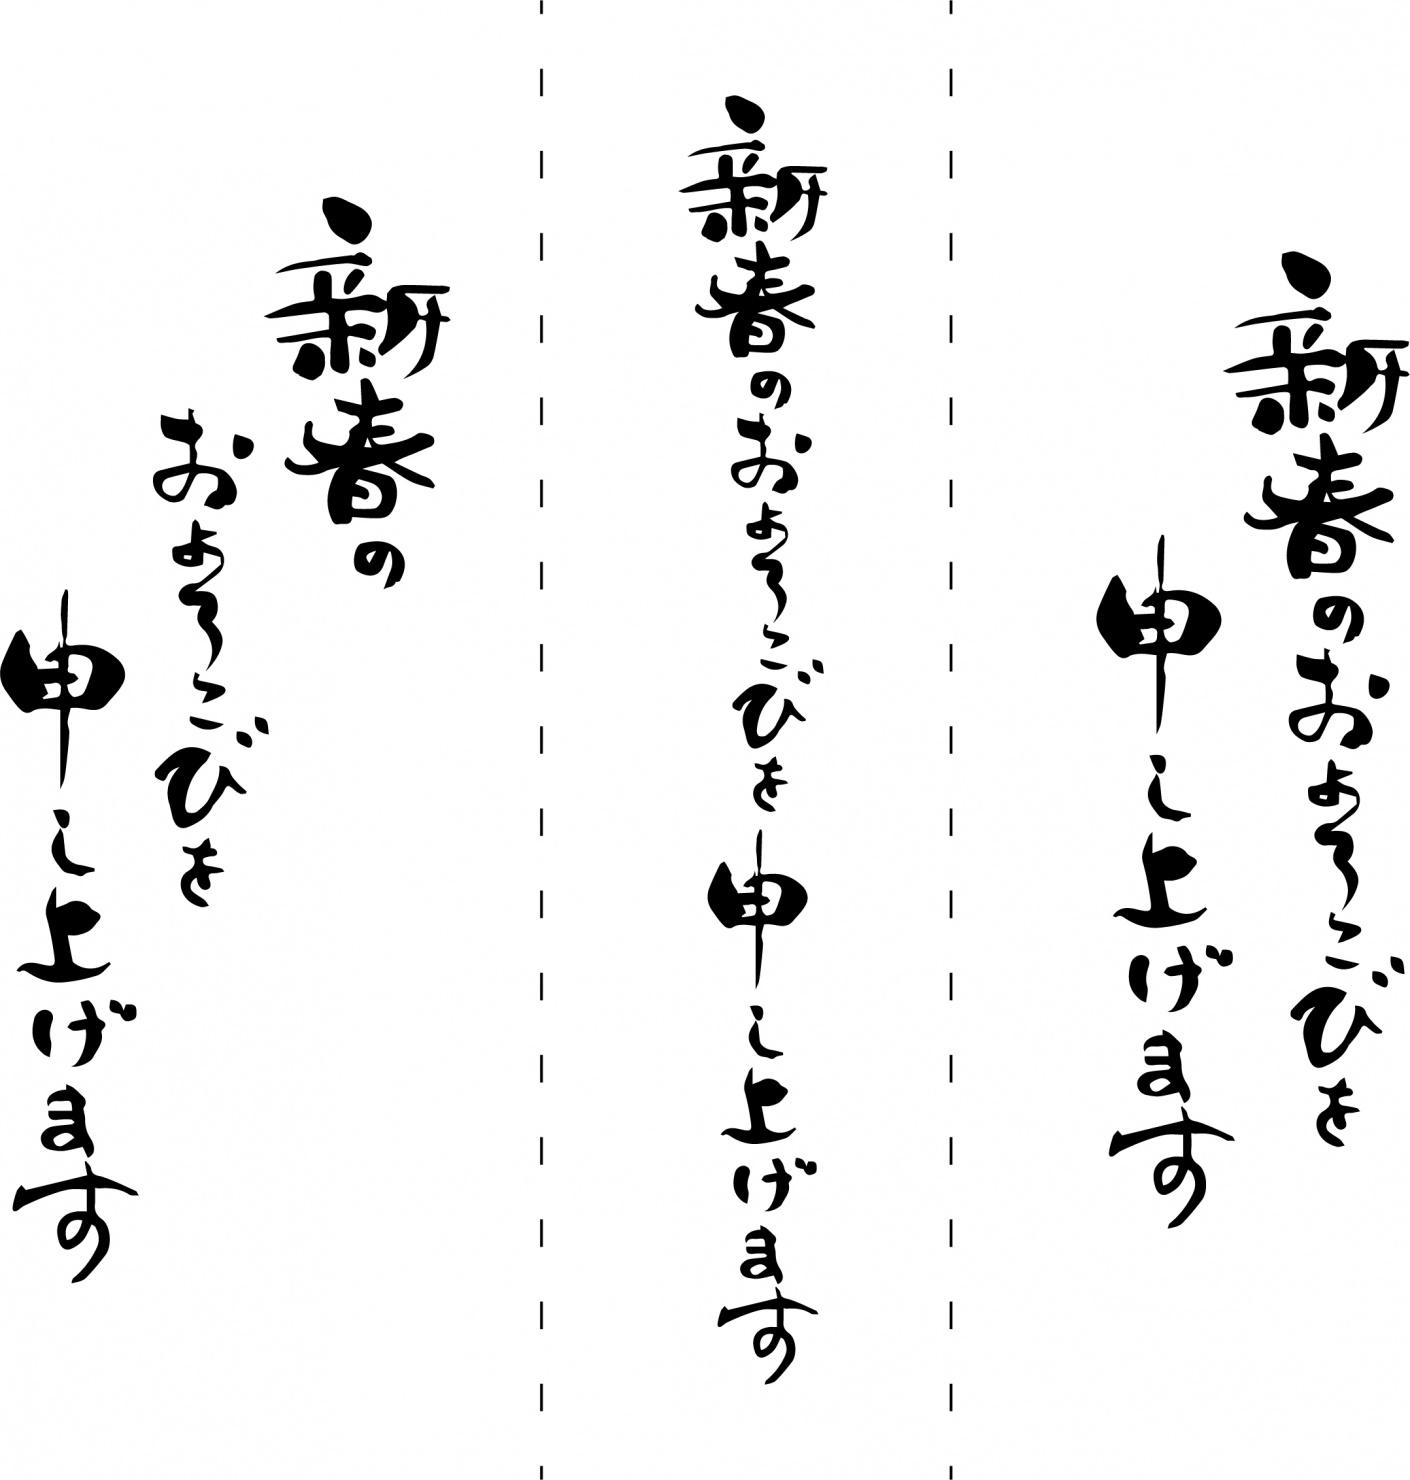 新春の
およろこびを
申し上げます
新春のおよろこびを申し上げます
新春のおよろこびを
申し上げます